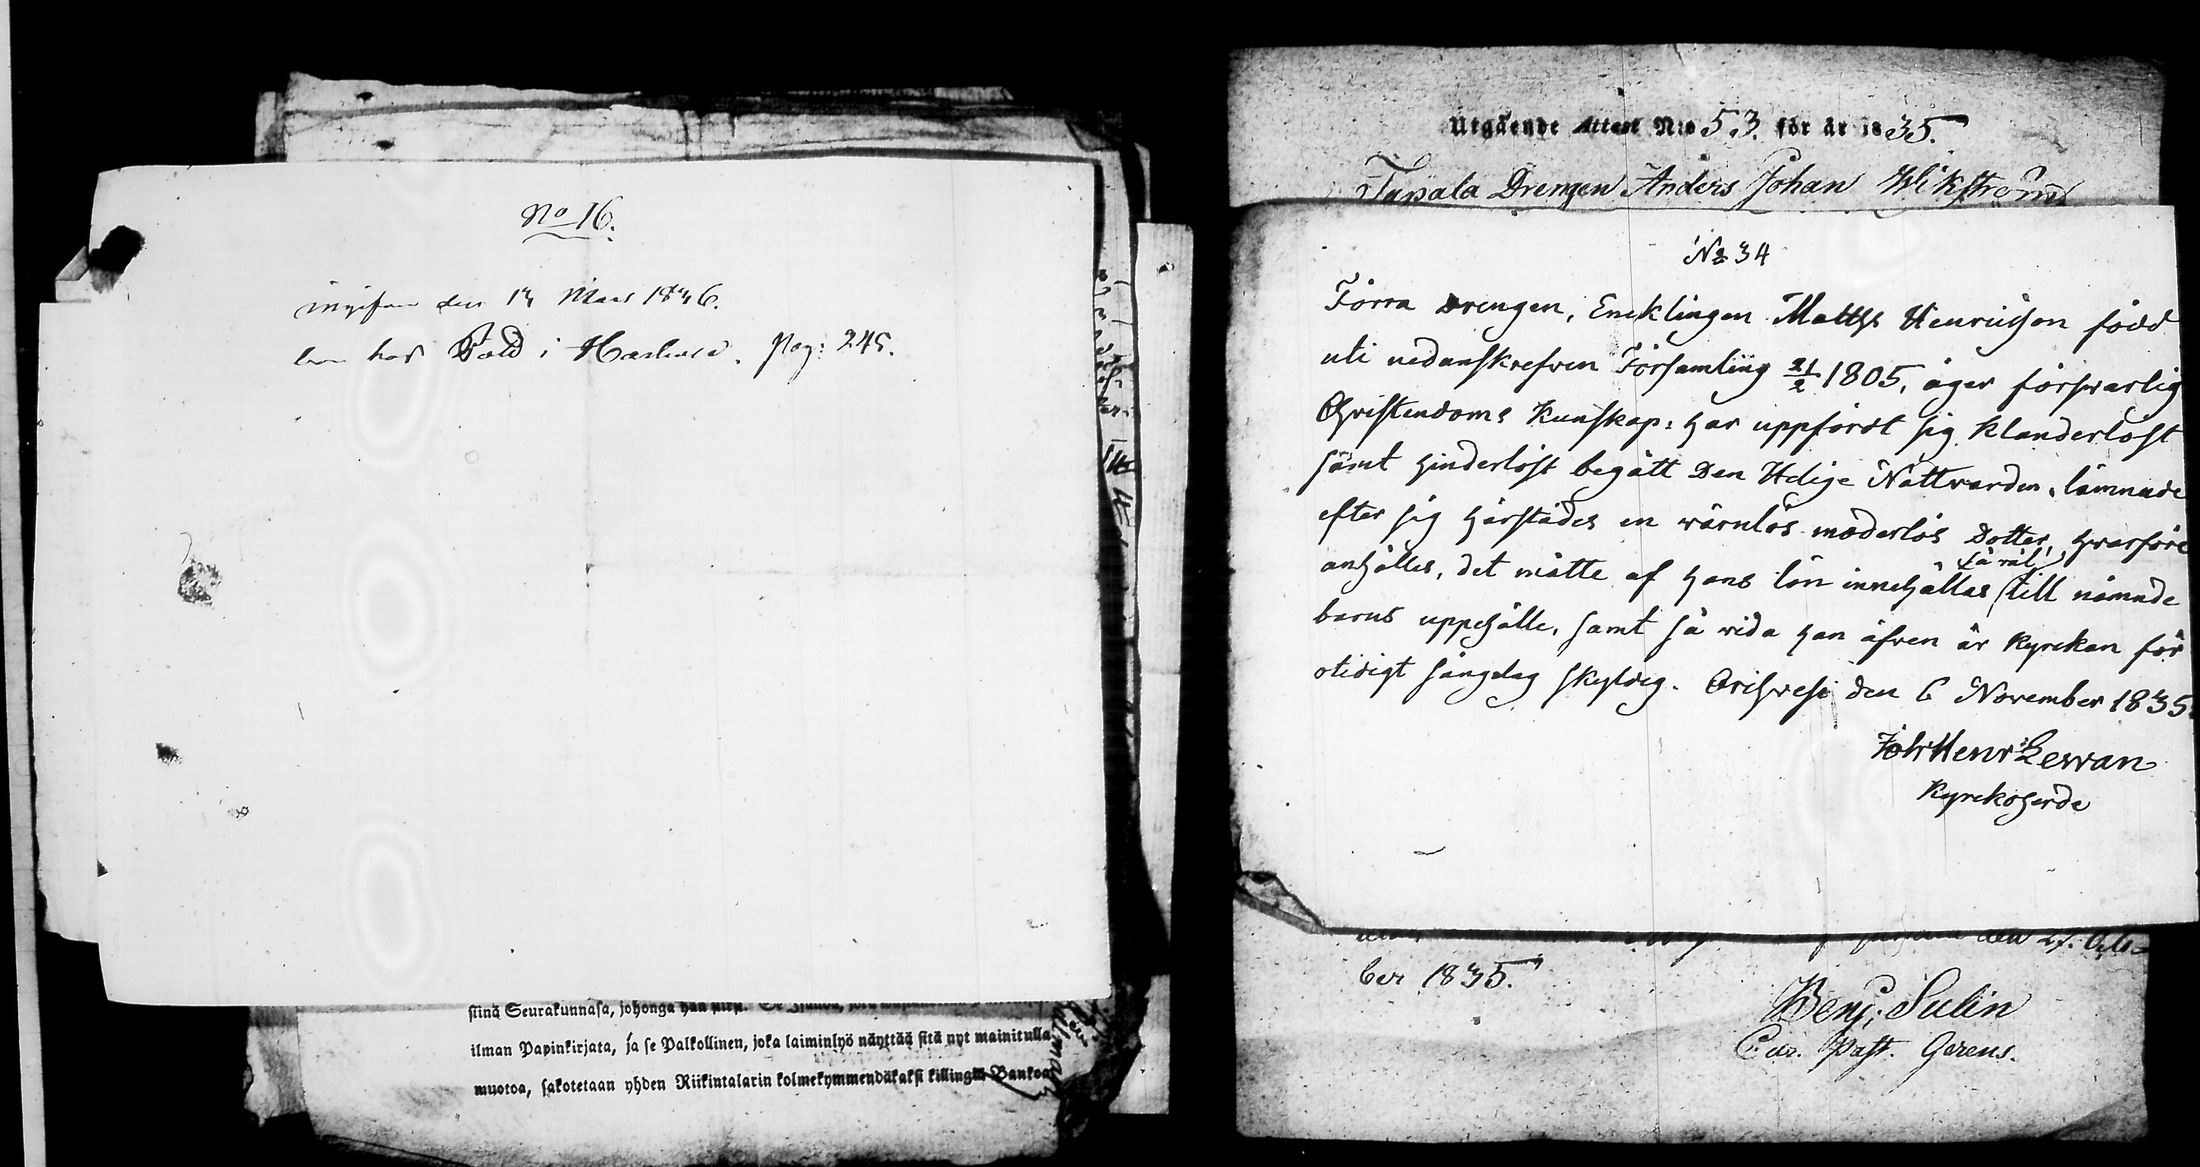 No 16.
den 14 Mars 1836.
har Båld i pag: 245.
siinä Seurakunnasa, johonga hän
ilman Papinkirjata, ja se Palkollinen, joka laiminlyö näyttää sitä nyt mainitulla
muotoa, sakotetaan yhden Riikintalarin kolmekymmendäkaksi killingiä Bankoa
Utgående Attest N:o 53. för år 1835.
Tupala Drengen Anders Johan Wikström
No 34
Förra Drengen, Encklingen Matths Henricsson född
uti nedanskrefven Församling 21/2 1805, äger försvarlig
Christendoms Kunskap: har uppfördt sig klanderlöst
samt hinderlöst begått Den Helige Nattvarden, lämnade
efter sig härstädes en wärnlös moderlös Dotter, hvarföre
anhålles, det måtte af hans lön innehållas (så väl) till nämnde
barns uppehälle, samt så vida han äfven är Kyrckan för
otidigt sängelag skyldig. Orihvesi den 6 November 1835.
Joh: Henr: Lewan
Kyrckoherde
den 27. Octo-
ber 1835.
Benj: Sulin
Cur. Past. Gerens.